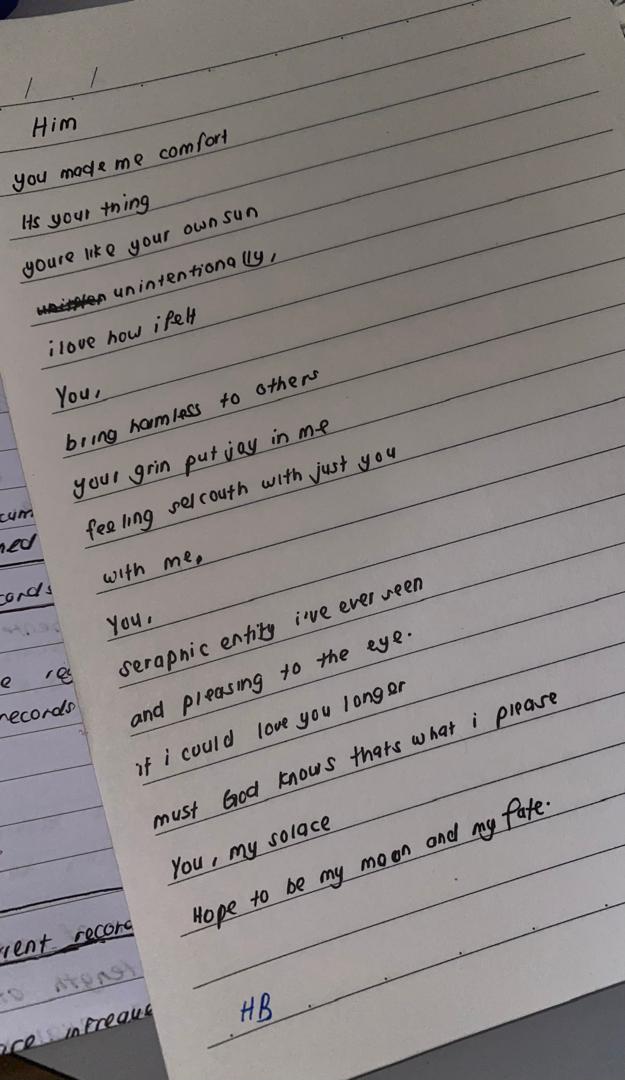 Him
you made me comfort
Its your thing
youre like your own sun
unintentionally,
i love how i felt
You,
bring harmless to others
your grin put joy in me
feeling selcouth with just you
with me,
You,
seraphic entity i've ever seen
and pleasing to the eye.
if i could love you longer
must God knows thats what i please
You, my solace
Hope to be my moon and my fate.
HB
cords
records
rent record